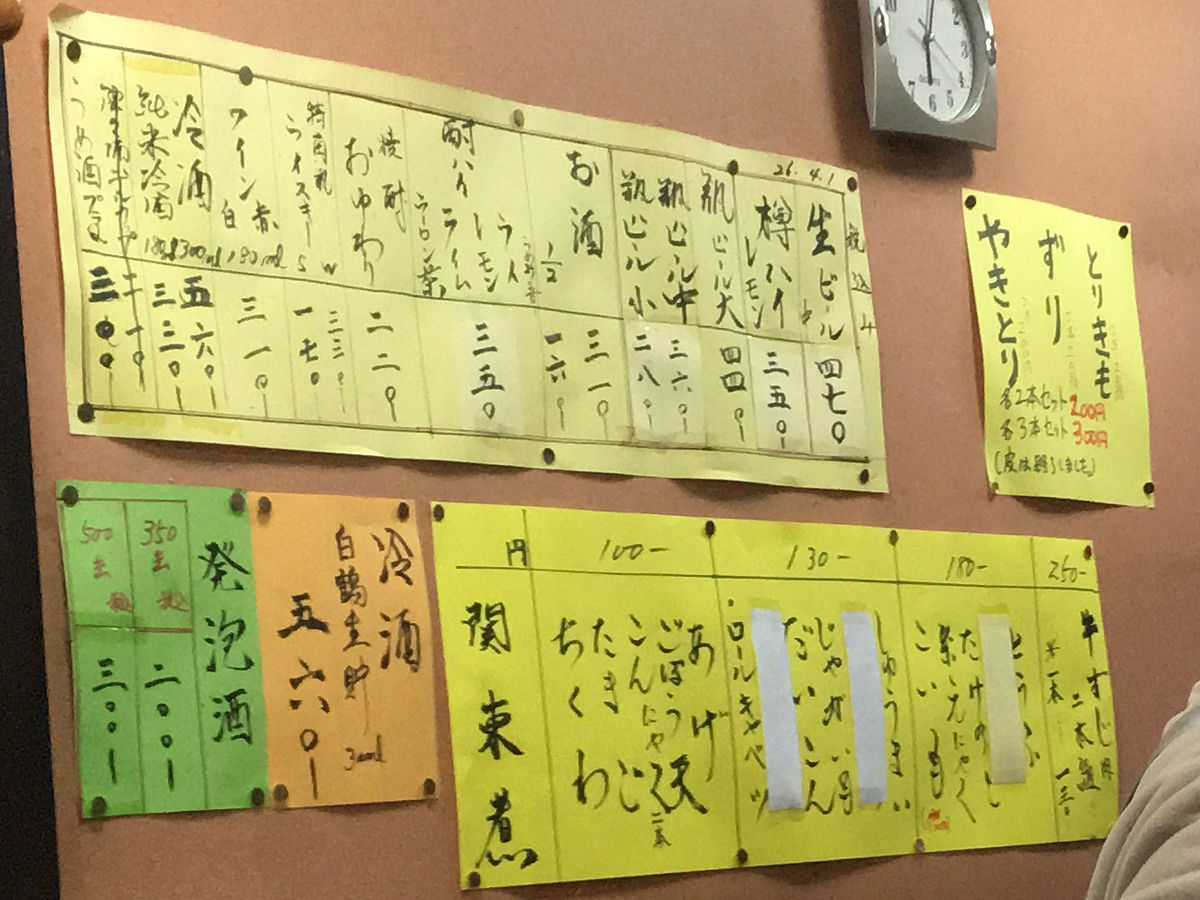 26.4.1
税込
生ビール 中 四七〇
樽ハイ レモン 三五〇
瓶ビール大 四四〇
瓶ビール中 三六〇
瓶ビール小 二八〇
お酒 三一〇
1/2 一六〇
酎ハイ ライム レモン 三五〇
焼酎 おゆわり 二二〇
特角瓶
ウイスキー S W 一七〇 三三〇
ワイン 赤 白 180ml 三一〇
冷酒 300ml 五六〇
純米冷酒 180ml 三三〇
うめ酒 三〇〇
とりきも
ずり
やきとり
各2本セット 200円
各3本セット 300円
(皮は終了しました)
発泡酒
350 缶 税込 二〇〇
500 缶 税込 三〇〇
冷酒
白鶴生貯 300ml
五六〇
関東煮
円
100-
あげ
ごぼう天
こんにゃく 二本
たまご
ちくわ
130-
しゅうまい
じゃがいも
だいこん
ロールキャベツ
180-
とうふ
たけのこ
糸こんにゃく
こいも
250-
牛すじ 二本盛
一本 一三〇